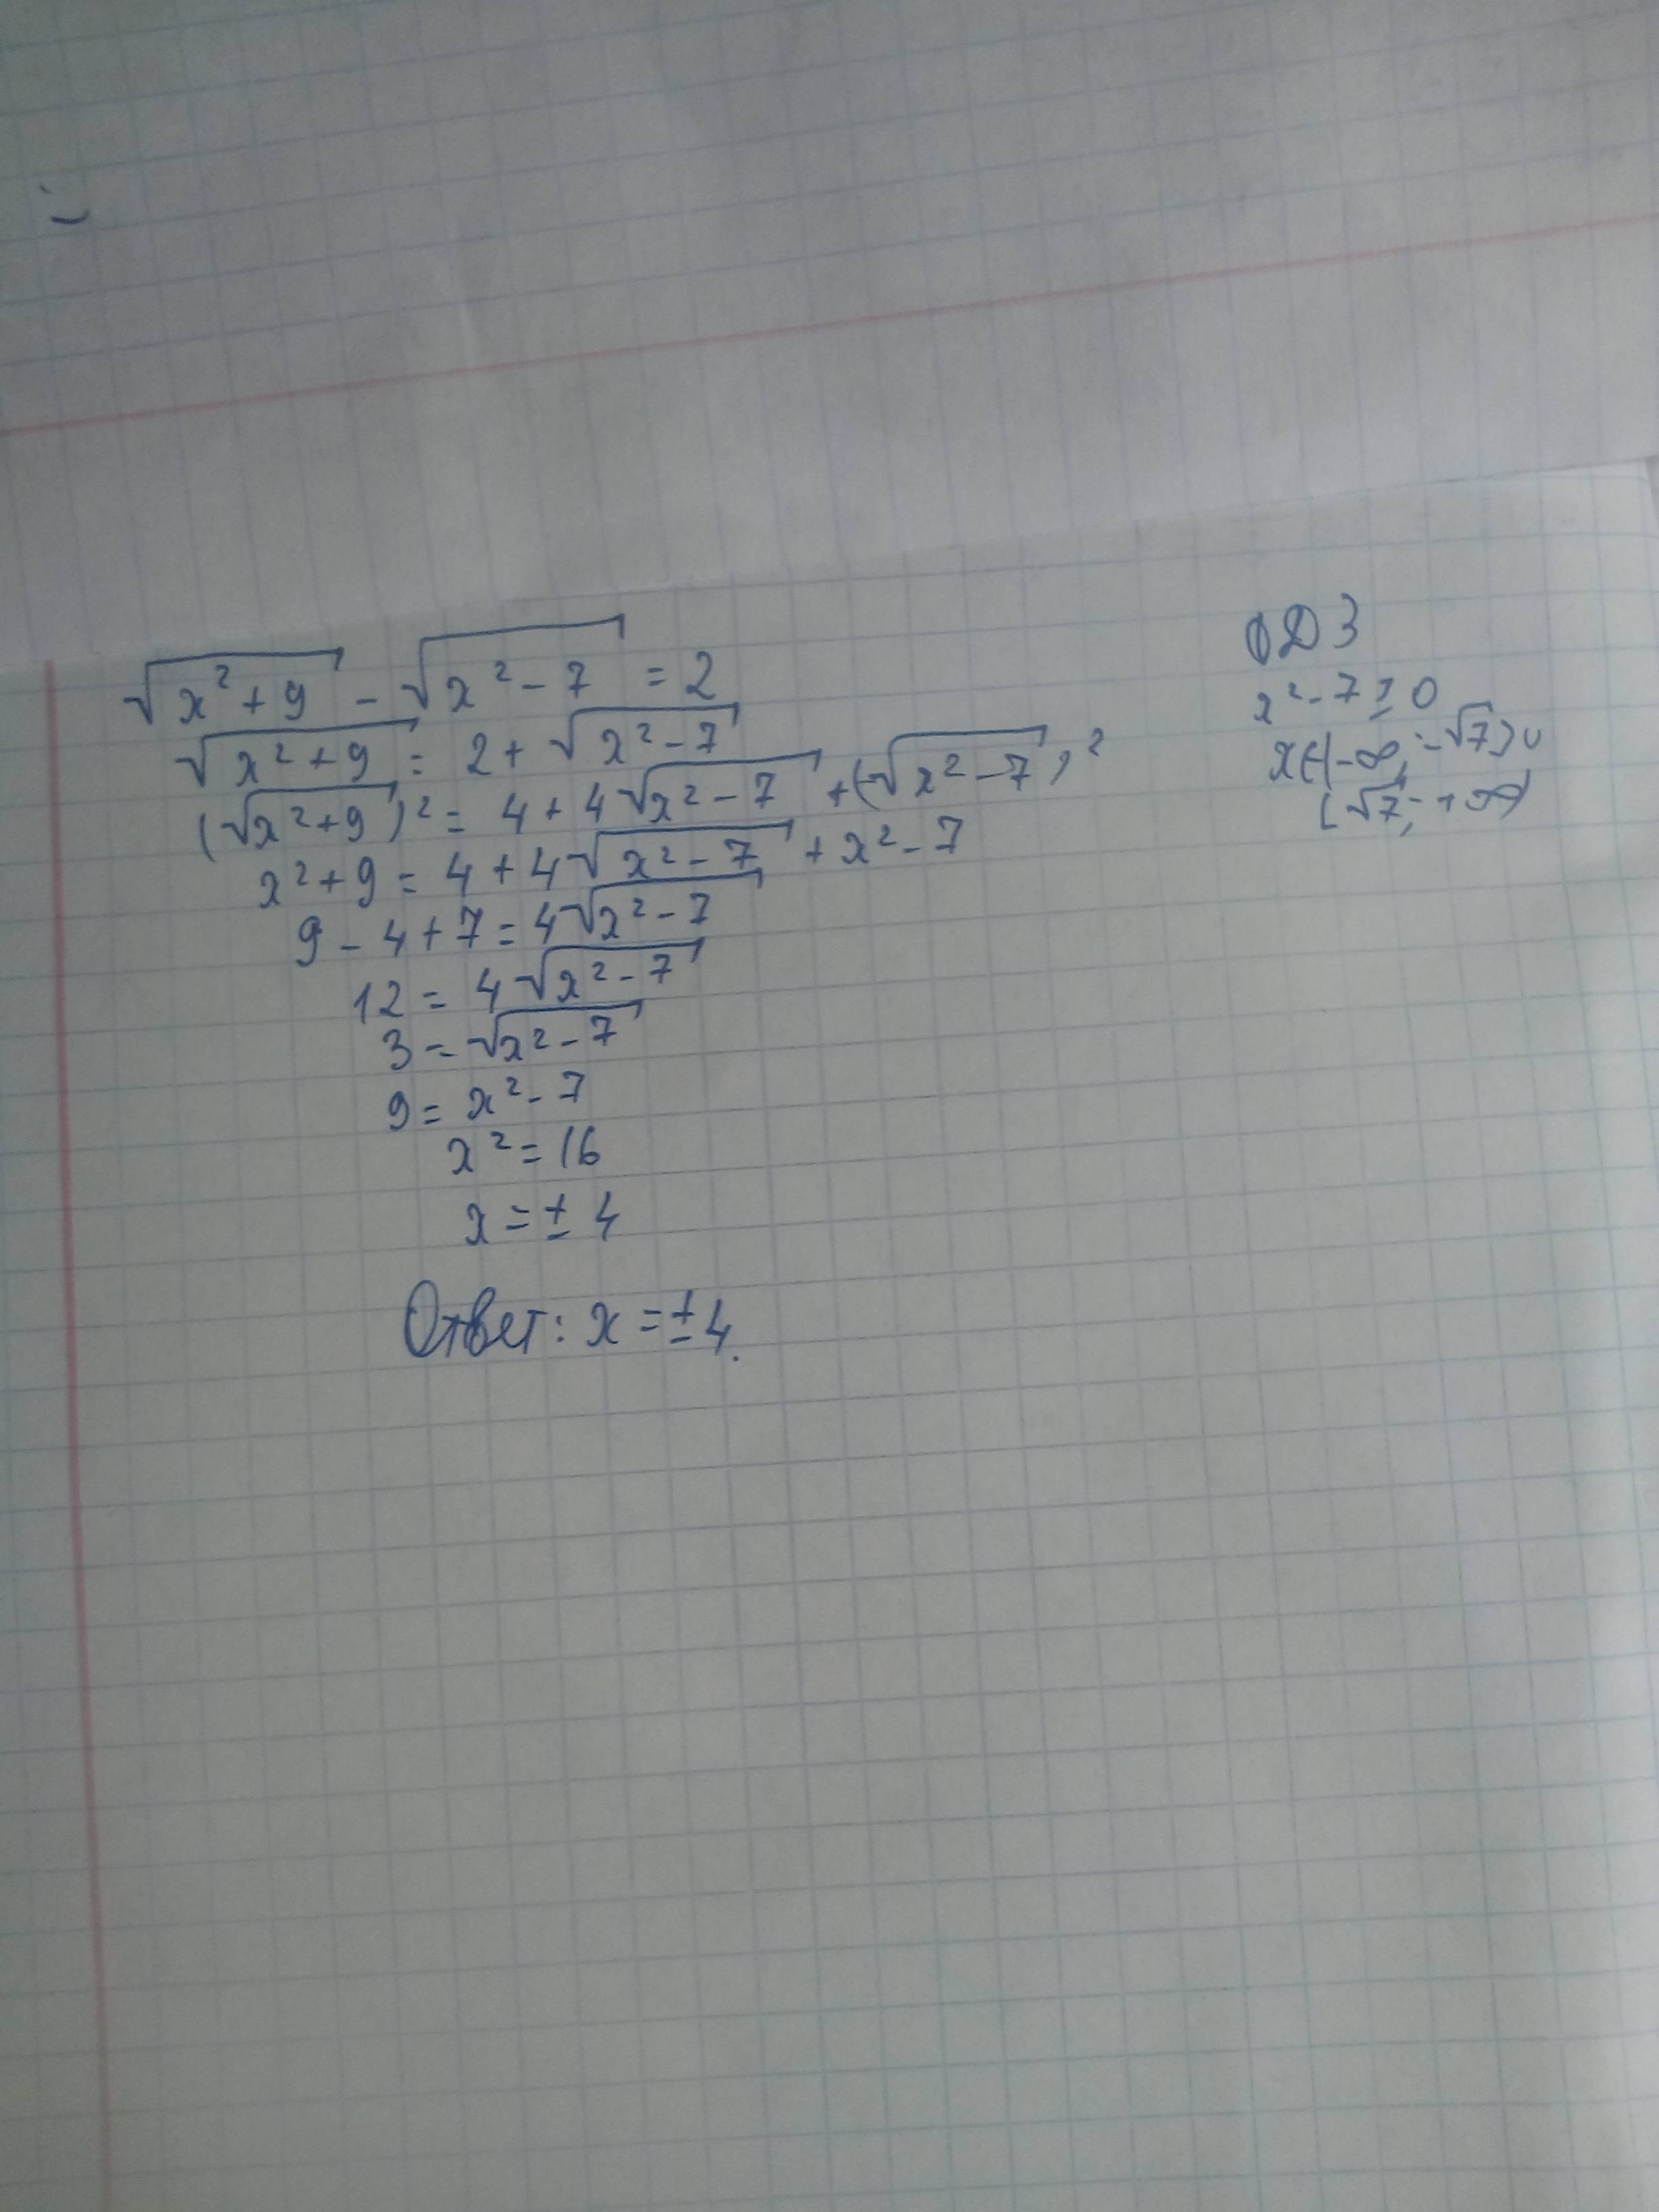 √(x²+9) - √(x²-7) = 2
√(x²+9) = 2 + √(x²-7)
(√(x²+9))² = 4 + 4√(x²-7) + (√(x²-7))²
x²+9 = 4 + 4√(x²-7) + x² - 7
9 - 4 + 7 = 4√(x²-7)
12 = 4√(x²-7)
3 = √(x²-7)
9 = x² - 7
x² = 16
x = ± 4
Ответ: x = ± 4.
ОДЗ
x² - 7 ≥ 0
x ∈ (-∞; -√7] ∪
[√7; +∞)